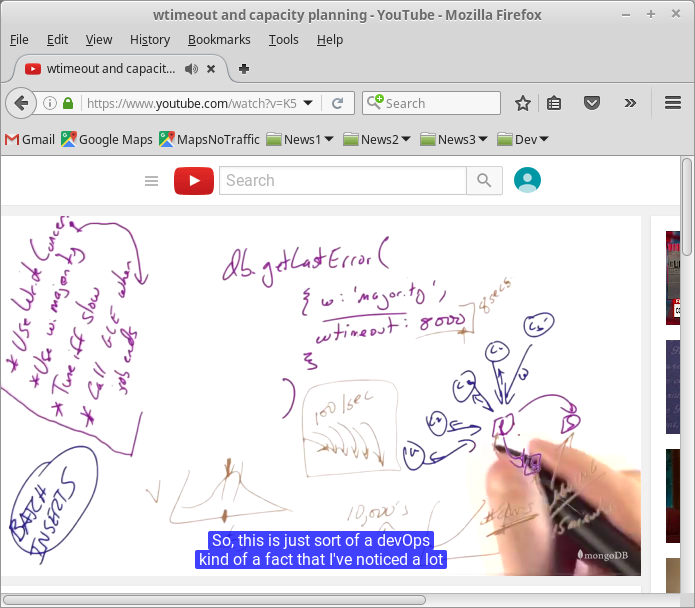 wtimeout and capacity planning - YouTube - Mozilla Firefox
File Edit View History Bookmarks Tools Help
wtimeout and capacit...
https://www.youtube.com/watch?v=K5
Search
Gmail Google Maps MapsNoTraffic News1 News2 News3 Dev
Search
* Use Write Concern
* Use w: majority
* Tune iff slow
* Call GLE when
job ends
db.getLastError(
{ w: 'majority',
wtimeout: 8000
8secs
}
)
100/sec
BATCH
INSERTS
V
10,000's
So, this is just sort of a devOps
kind of a fact that I've noticed a lot
mongoDB